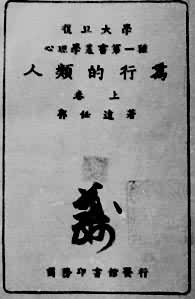 復旦大學
心理學叢書第一種
人類的行為
卷上
郭任遠著
商務印書館發行